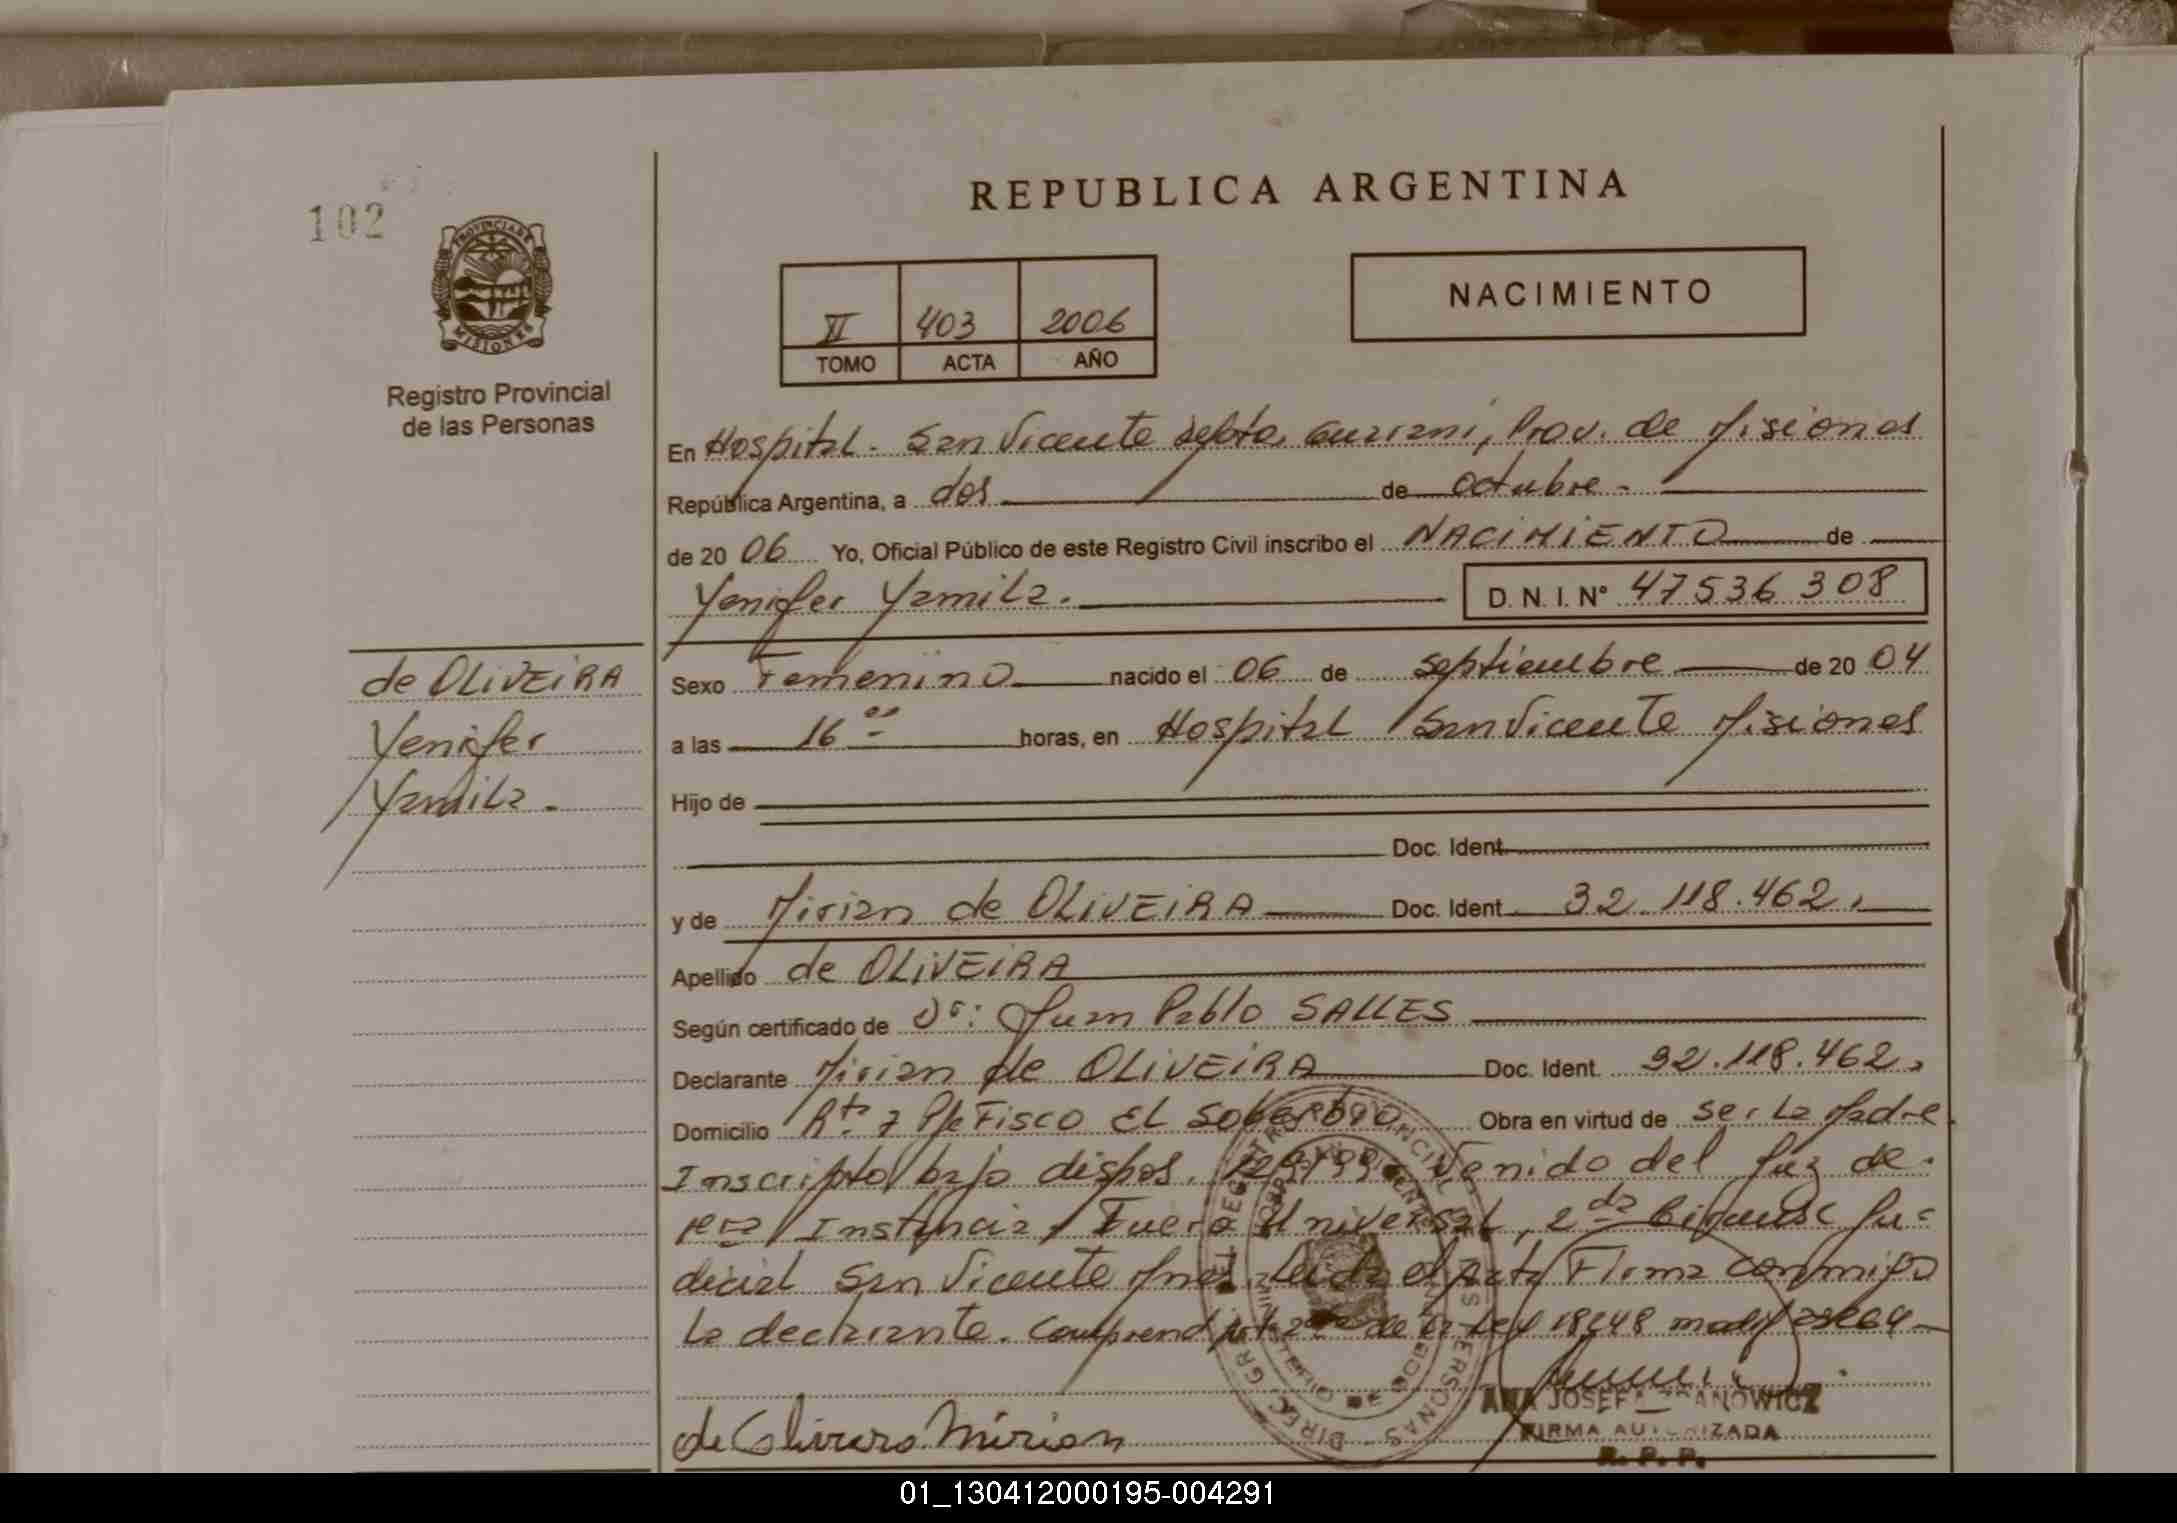 REPUBLICA ARGENTINA
102
PROVINCIA DE
MISIONES
Registro Provincial
de las Personas
II 403 2006
TOMO ACTA AÑO
NACIMIENTO
En Hospital - San Vicente depto. Guarani, Prov. de Misiones
República Argentina, a dos de octubre -
de 20 06 Yo, Oficial Público de este Registro Civil inscribo el NACIMIENTO de
Yenifer Yamila. D. N. I. N° 47536 308
de OLIVEIRA
Yenifer
Yamila.
Sexo Femenino nacido el 06 de septiembre de 20 04
a las 16 horas, en Hospital San Vicente Misiones
Hijo de
Doc. Ident.
y de Mirian de OLIVEIRA Doc. Ident. 32.118.462.
Apellido de OLIVEIRA
Según certificado de Dr: Juan Pablo SALLES
Declarante Mirian de OLIVEIRA Doc. Ident. 32.118.462,
Domicilio Rta 7 Pje Fisco EL Soberbio Obra en virtud de ser La Madre
Inscripto bajo dispos. Venido del Juz de
1era Instancia, Fuero Universal, 2da Ju=
dicial San Vicente Mnes. Leida el Acta Firma conmigo
La declarante. de la Ley 18248 modif
de Olivera Mirian
ANA JOSEFA
FIRMA AUTORIZADA
R. P. P.
01_130412000195-004291